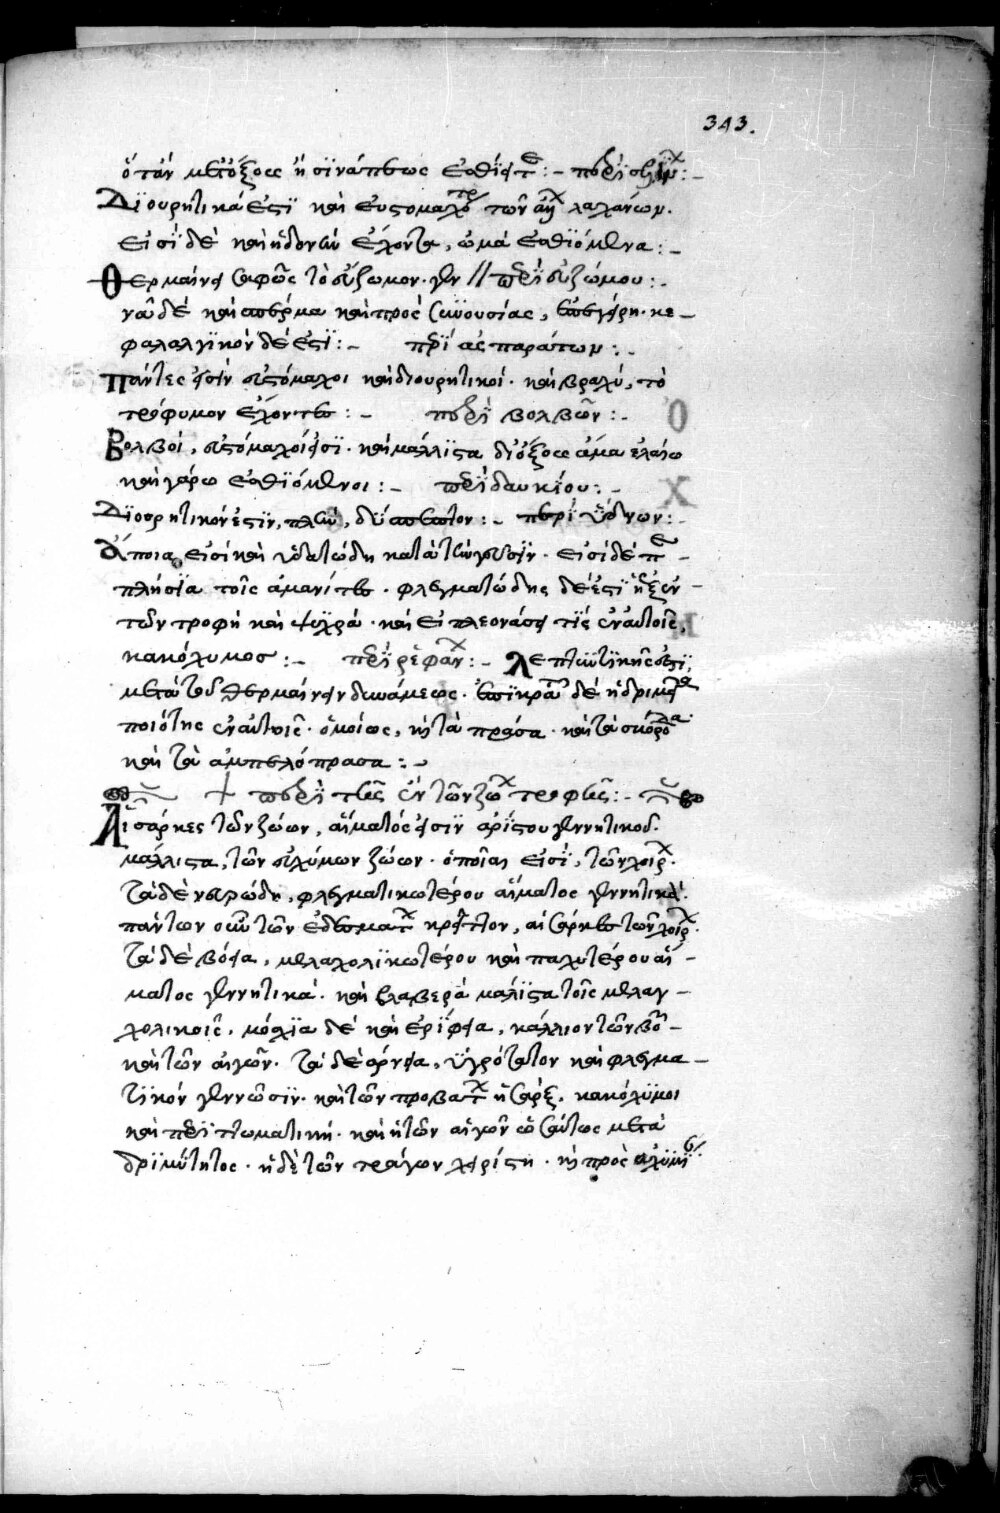 343.
ὅταν μετόξους ἢ σινάπεως ἐσθίητε :- περὶ σισάρων :-
Διουρητικά ἐστι καὶ εὐστομαχότερα τῶν ἀγρίων λαχάνων.
εἰσὶ δὲ καὶ ἡδονὴν ἔχοντα, ὠμὰ ἐσθιόμενα :-
Θερμαίνει σαφῶς τὸ εὔζωμον. γεν // περὶ εὐζώμου :-
νᾶ δὲ καὶ σπέρμα καὶ πρὸς συνουσίας, ἐπεγείρει. κε-
φαλαλγικὸν δέ ἐστι :- περὶ ἀσπαράγων :-
Πάντες εἰσὶν εὐστόμαχοι καὶ διουρητικοί. καὶ βραχὺ, τὸ
τρόφυμον ἔχοντες :- περὶ βολβῶν :-
Βολβοί, εὐστόμαχοί εἰσι. καὶ μάλλιστα δι' ὄξους ἅμα ἐλαίω
καὶ γάρω ἐσθιόμενοι :- περὶ δαυκίου :-
Διουρητικόν ἐστιν, πλὴν, δύσπεπτον :- περὶ ὕδνων :-
Ἄποια εἰσὶ καὶ ὑδατώδη κατὰ τὴν γεῦσιν. εἰσὶ δὲ πα-
πλήσια τοῖς ἀμανίταις. φλεγματώδης δέ ἐστι ἡ ἐξ αὐ-
τῶν τροφὴ καὶ ψυχρά. καὶ εἰ πλεονάσει τίς ἐν αὐτοῖς,
κακόχυμος :- περὶ ρεφάνων :- Λεπτυντικῆς ἐστι,
μετὰ τοῦ θερμαίνειν δυνάμεως. ἐπικρατεῖ δὲ ἡ δριμεῖα
ποιότης ἐν αὐτοῖς. ὁμοίως, καὶ τὰ πράσα. καὶ τὰ σκόροδα.
καὶ τὰ ἀμπελόπρασα :-
+ περὶ τῆς ἐκ τῶν ζώων τροφῆς :-
Αἱ σάρκες τῶν ζώων, αἵματός εἰσιν ἀρίστου γεννητικοί.
μάλλιστα, τῶν εὐχύμων ζώων. ὁποῖαι εἰσὶ, τῶν χοίρων.
τὰ δὲ νευρώδη, φλεγματικωτέρου αἵματος γεννητικά.
πάντων οὖν τῶν ἐδεσμάτων κρεῖττον, αἱ σάρκες τῶν χοίρων.
τὰ δὲ βόεια, μελαχολικωτέρου καὶ παχυτέρου αἵ-
ματος γεννητικά. καὶ βλαβερὰ μάλιστα τοῖς μελαγ-
χολικοῖς. μόσχια δὲ καὶ ἐρίφεια, κάλλιον τῶν βοῶν-
καὶ τῶν αἰγῶν. τὰ δὲ ἄρνεια, ὑγρότατον καὶ φλεγμα-
τικὸν γεννῶσιν. καὶ τῶν προβάτων ἡ σάρξ, κακόχυμοι
καὶ περιττωματική. καὶ ἡ τῶν αἰγῶν ὡσαύτως μετὰ
δριμύτητος. ἡ δὲ τῶν τράγων χειρίστη. καὶ πρὸς εὐχυμίαν